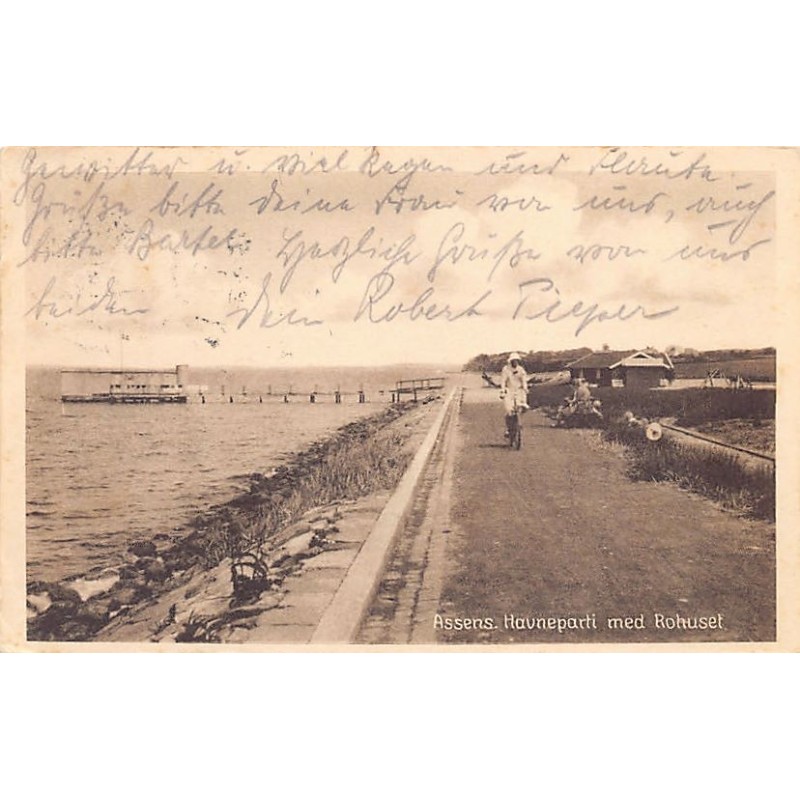 Gewitter u. viel Regen und Flaute.
Grüße bitte deine Frau von uns, auch
bitte Bartel. Herzlich Grüße von uns
beiden Dein Robert Pieper
Assens. Havneparti med Rohuset.